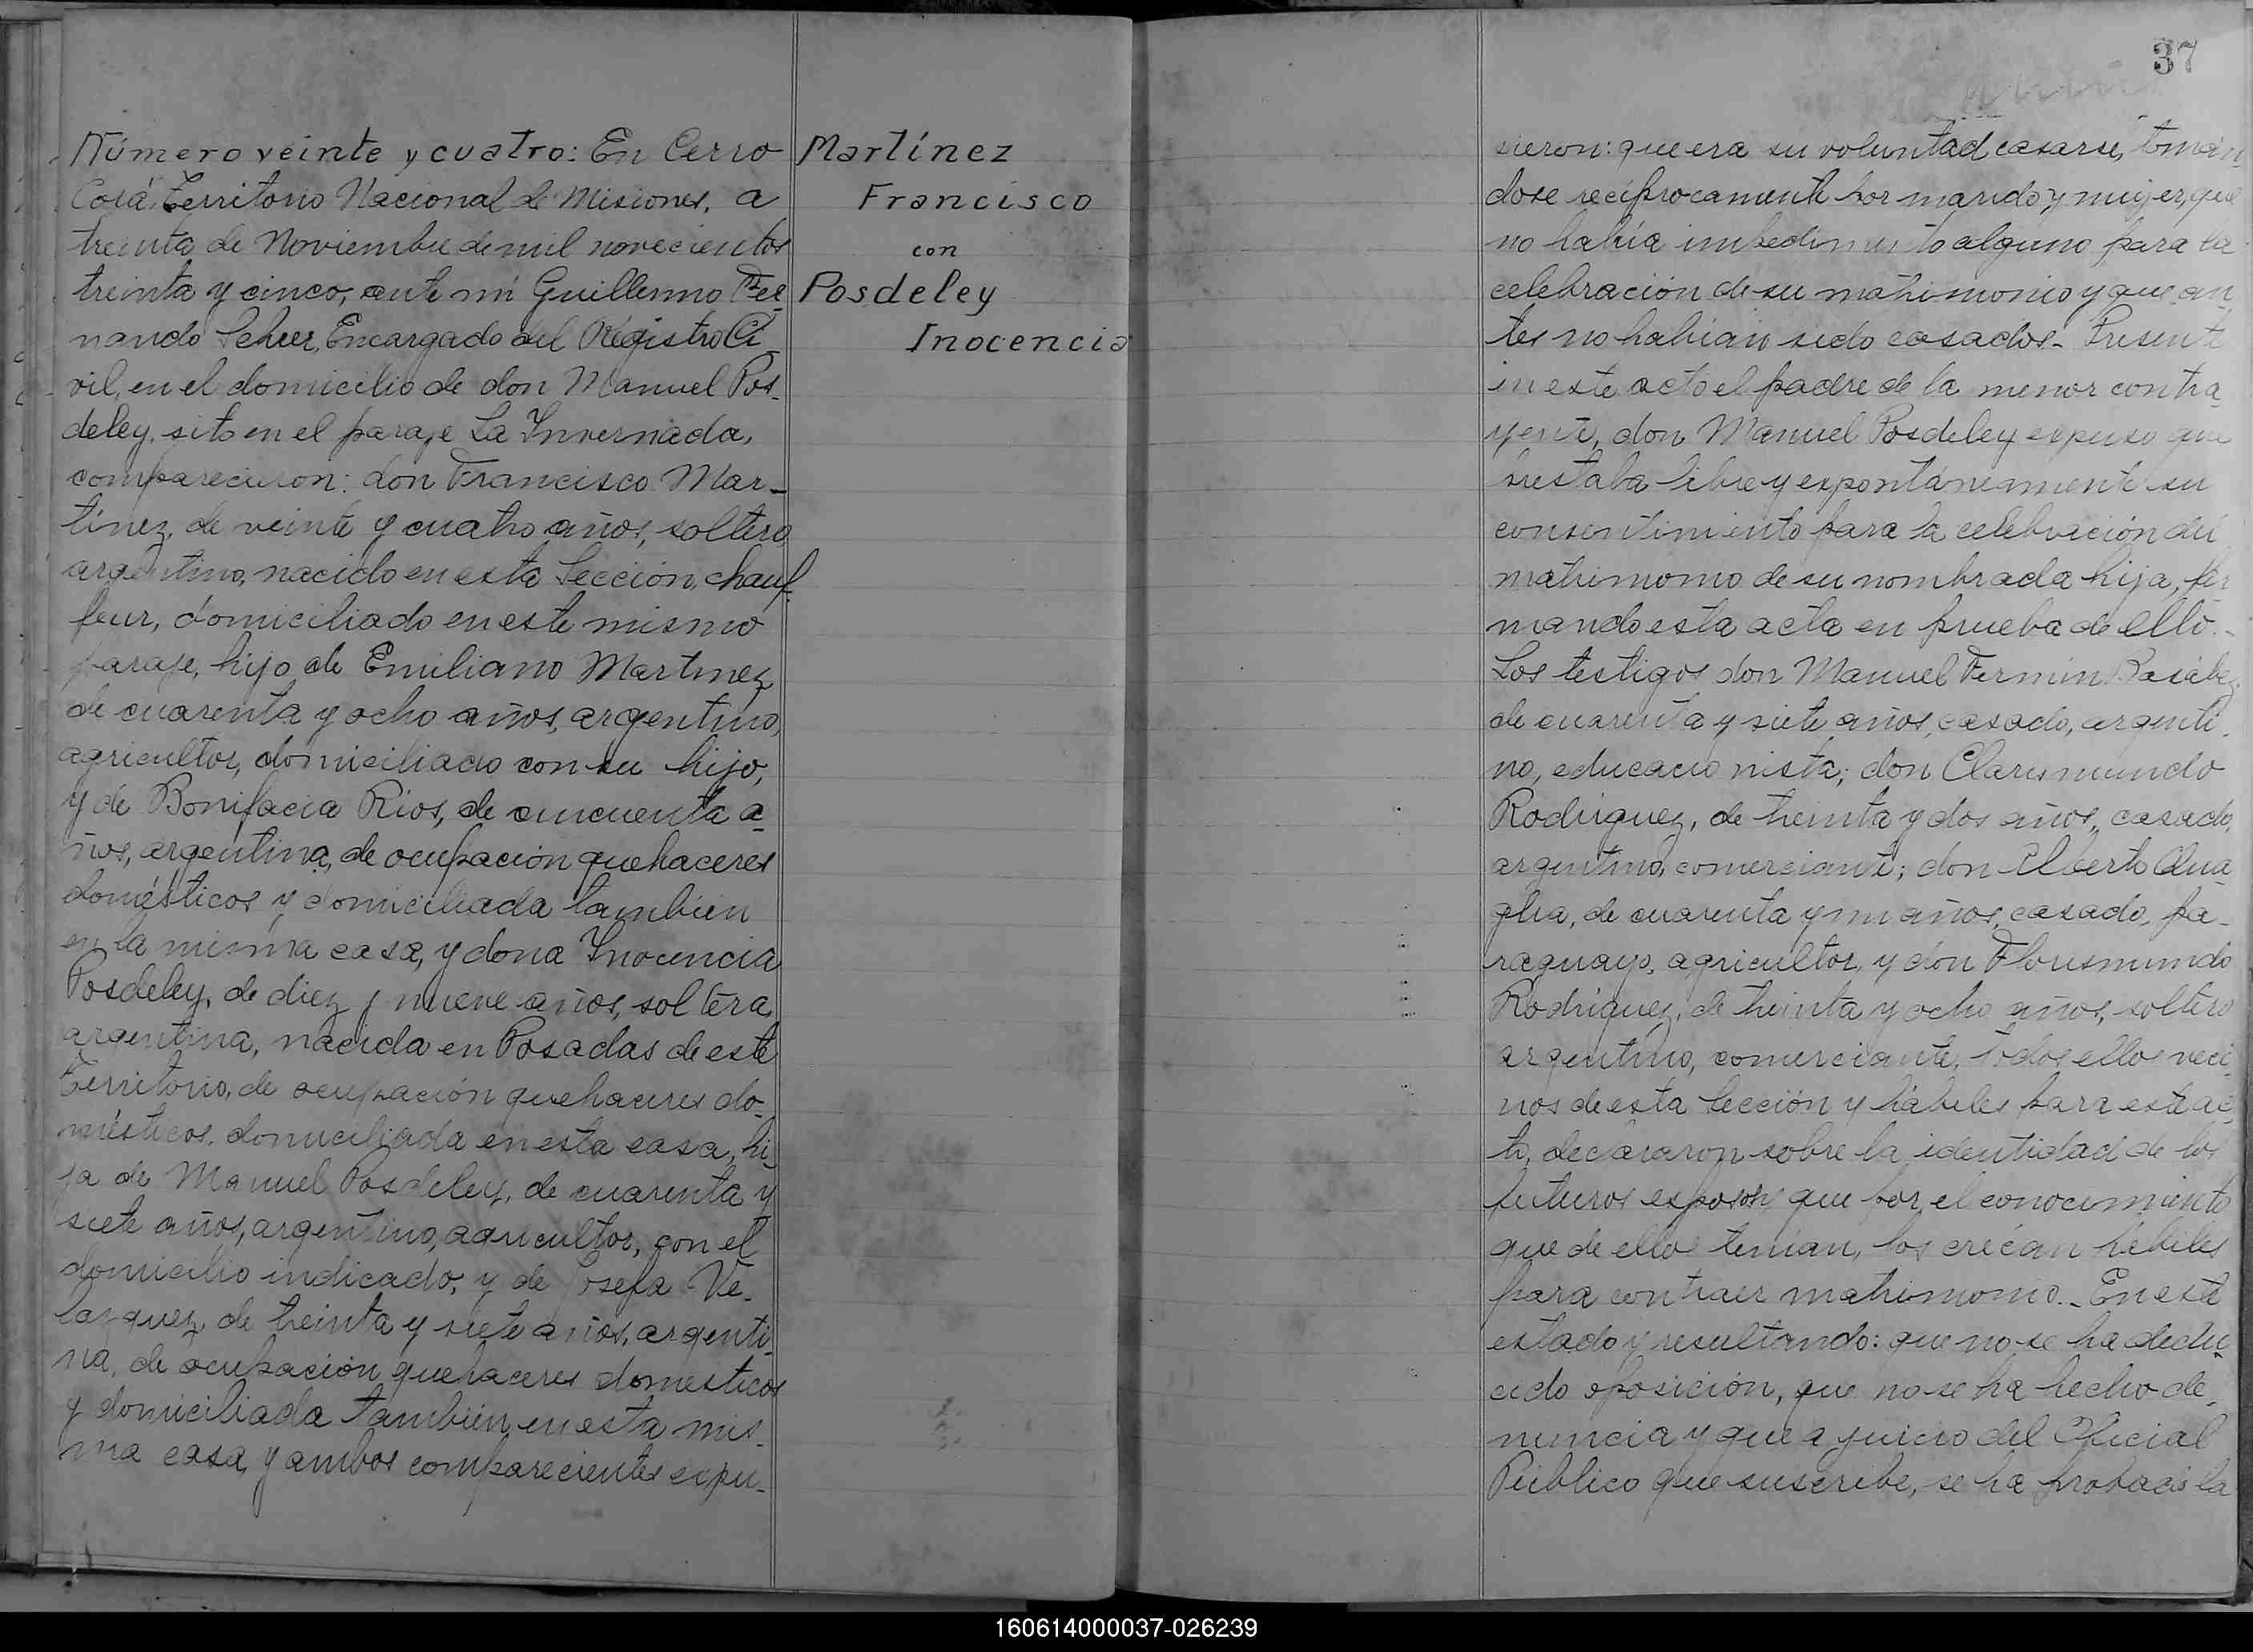 Número veinte y cuatro: En Cerro
Corá, Territorio Nacional de Misiones, a
treinta de Noviembre de mil novecientos
treinta y cinco, ante mi Guillermo Fer
nando Scheer, Encargado del Registro Ci
vil, en el domicilio de don Manuel Pos-
deley, sito en el paraje La Invernada,
comparecieron: don Francisco Mar-
tínez, de veinte y cuatro años, soltero,
argentino, nacido en esta Sección, chauf-
feur, domiciliado en este mismo
paraje, hijo de Emiliano Martinez
de cuarenta y ocho años, argentino,
agricultor, domiciliado con su hijo,
y de Bonifacia Rios, de cincuenta a-
ños, argentina, de ocupación quehaceres
domésticos y domiciliada tambien
en la misma casa, y dona Inocencia
Posdeley, de diez y nueve años, soltera,
argentina, nacida en Posadas de este
Territorio, de ocupación quehaceres do-
mésticos, domiciliada en esta casa, hi-
ja de Manuel Posdeley, de cuarenta y
siete años, argentino, agricultor, con el
domicilio indicado, y de Josefa Ve-
lazquez, de treinta y siete años, argenti-
na, de ocupación quehaceres domesticos
y domiciliada tambien en esta mis-
ma casa, y ambos comparecientes expu-
Martínez
Francisco
con
Posdeley
Inocencia
37
sieron: que era su voluntad casarse, tomán-
dose recíprocamente por marido y mujer, que
no había impedimento alguno para la
celebración de su matrimonio y que an-
tes no habían sido casados.- Presente
en este acto el padre de la menor contra-
yente, don Manuel Posdeley expuso que
prestaba libre y espontáneamente su
consentimiento para la celebración del
matrimonio de su nombrada hija, fir
mando esta acta en prueba de ello.-
Los testigos don Manuel Fermin
de cuarenta y siete años, casado, argenti-
no, educacionista; don Clarismundo
Rodriguez, de treinta y dos años, casado,
argentino, comerciante; don Alberto Qua-
glia, de cuarenta y un años, casado, pa-
raguayo, agricultor, y don Florismundo
Rodriguez, de treinta y ocho años, soltero
argentino, comerciante, todos ellos veci-
nos de esta Sección y hábiles para este ac-
to, declararon sobre la identidad de los
futuros esposos y que por el conocimiento
que de ellos tenian, los creían hábiles
para contraer matrimonio.- En este
estado y resultando: que no se ha dedu-
cido oposición, que no se ha hecho de-
nuncia y que a juicio del Oficial
Público que suscribe, se ha probado la
160614000037-026239